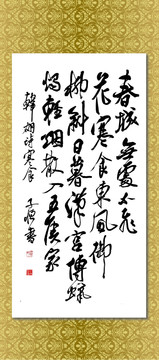 春城無處不飛
花寒食東風御
柳斜日暮漢宮傳蠟
燭輕烟散入五侯家
韓翃詩寒食